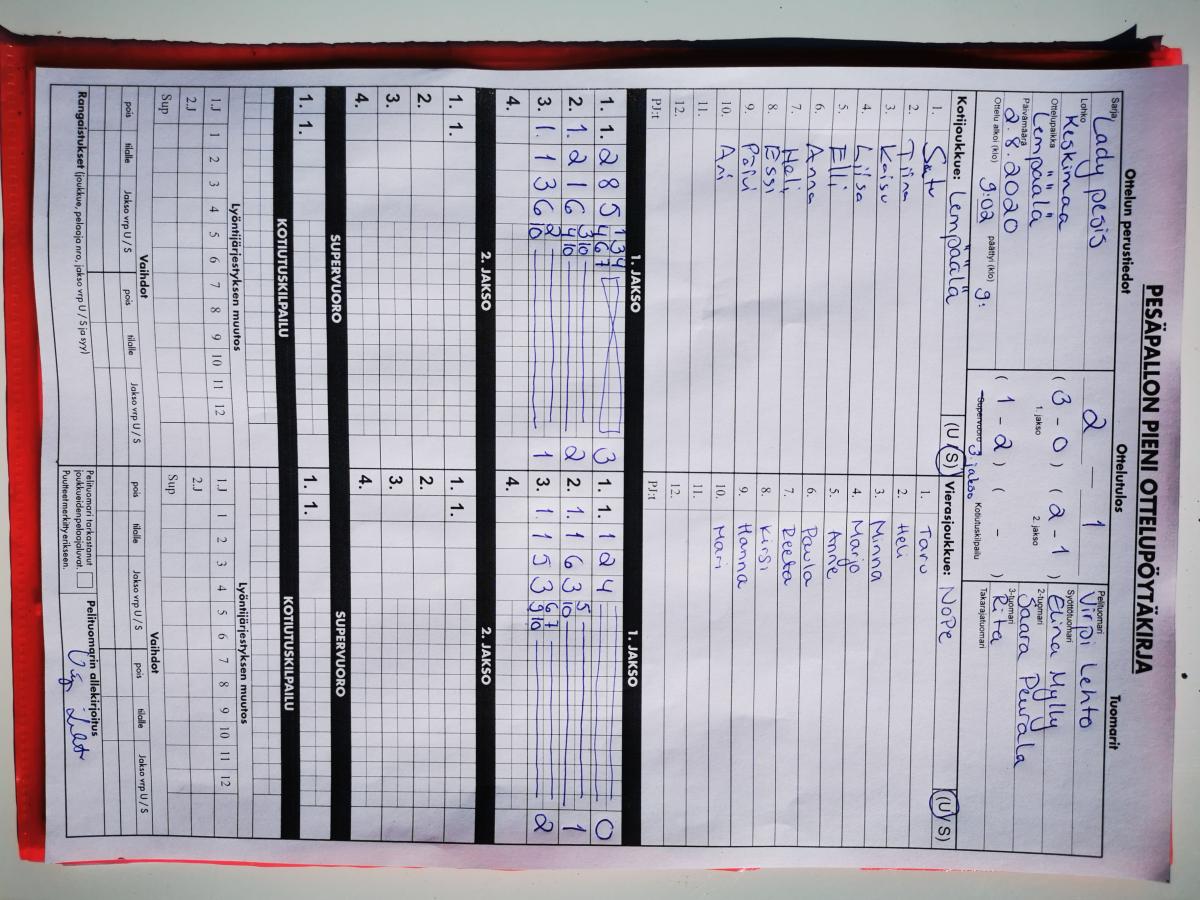 PESÄPALLON PIENI OTTELUPÖYTÄKIRJA
Ottelun perustiedot
Sarja
Lady pesis
Lohko
Keskimaa
Ottelupaikka
Lempäälä
Päivämäärä
2.8.2020
Ottelu alkoi (klo) 9:02 päättyi (klo) 9:
Ottelutulos
2 — 1
( 3 - 0 ) ( 2 - 1 )
1. jakso 2. jakso
( 1 - 2 ) ( - )
Supervuoro 3. jakso Kotiutuskilpailu
Tuomarit
Pelituomari
Virpi Lehto
Syöttötuomari
Elina Mylly
2-tuomari
Saara Peurala
3-tuomari
Rita
Takarajatuomari
Kotijoukkue: Lempäälä (U/S)
1. Satu
2. Tiina
3. Kaisu
4. Liisa
5. Elli
6. Anna
7. Heli
8. Essi
9. Päivi
10. Ani
11.
12.
PJ:t
Vierasjoukkue: Nope (U/S)
1. Taru
2. Heli
3. Minna
4. Marjo
5. Anne
6. Paula
7. Reeta
8. Kirsi
9. Hanna
10. Mari
11.
12.
PJ:t
1. JAKSO 1. JAKSO
1. 1. 2 8 5 1 3 4 4 6 7 3
2. 1. 2 1 6 3 10 4 10 2
3. 1. 1 3 6 2 10 1
4.
1. 1. 1 2 4 0
2. 1. 1 6 3 5 10 1
3. 1 1 5 3 6 7 9 10 2
4.
2. JAKSO 2. JAKSO
1. 1.
2.
3.
4.
1. 1.
2.
3.
4.
SUPERVUORO SUPERVUORO
1. 1. 1. 1.
KOTIUTUSKILPAILU KOTIUTUSKILPAILU
Lyöntijärjestyksen muutos
1 2 3 4 5 6 7 8 9 10 11 12
1.J
2.J
Sup
Lyöntijärjestyksen muutos
1 2 3 4 5 6 7 8 9 10 11 12
1.J
2.J
Sup
Vaihdot
pois tilalle Jakso vrp U / S pois tilalle Jakso vrp U / S
Vaihdot
pois tilalle Jakso vrp U / S pois tilalle Jakso vrp U / S
Rangaistukset (joukkue, pelaaja nro, jakso vrp U / S ja syy)
Pelituomari tarkastanut
joukkueiden pelaajaluvat.
Puutteet merkitty erikseen.
Pelituomarin allekirjoitus